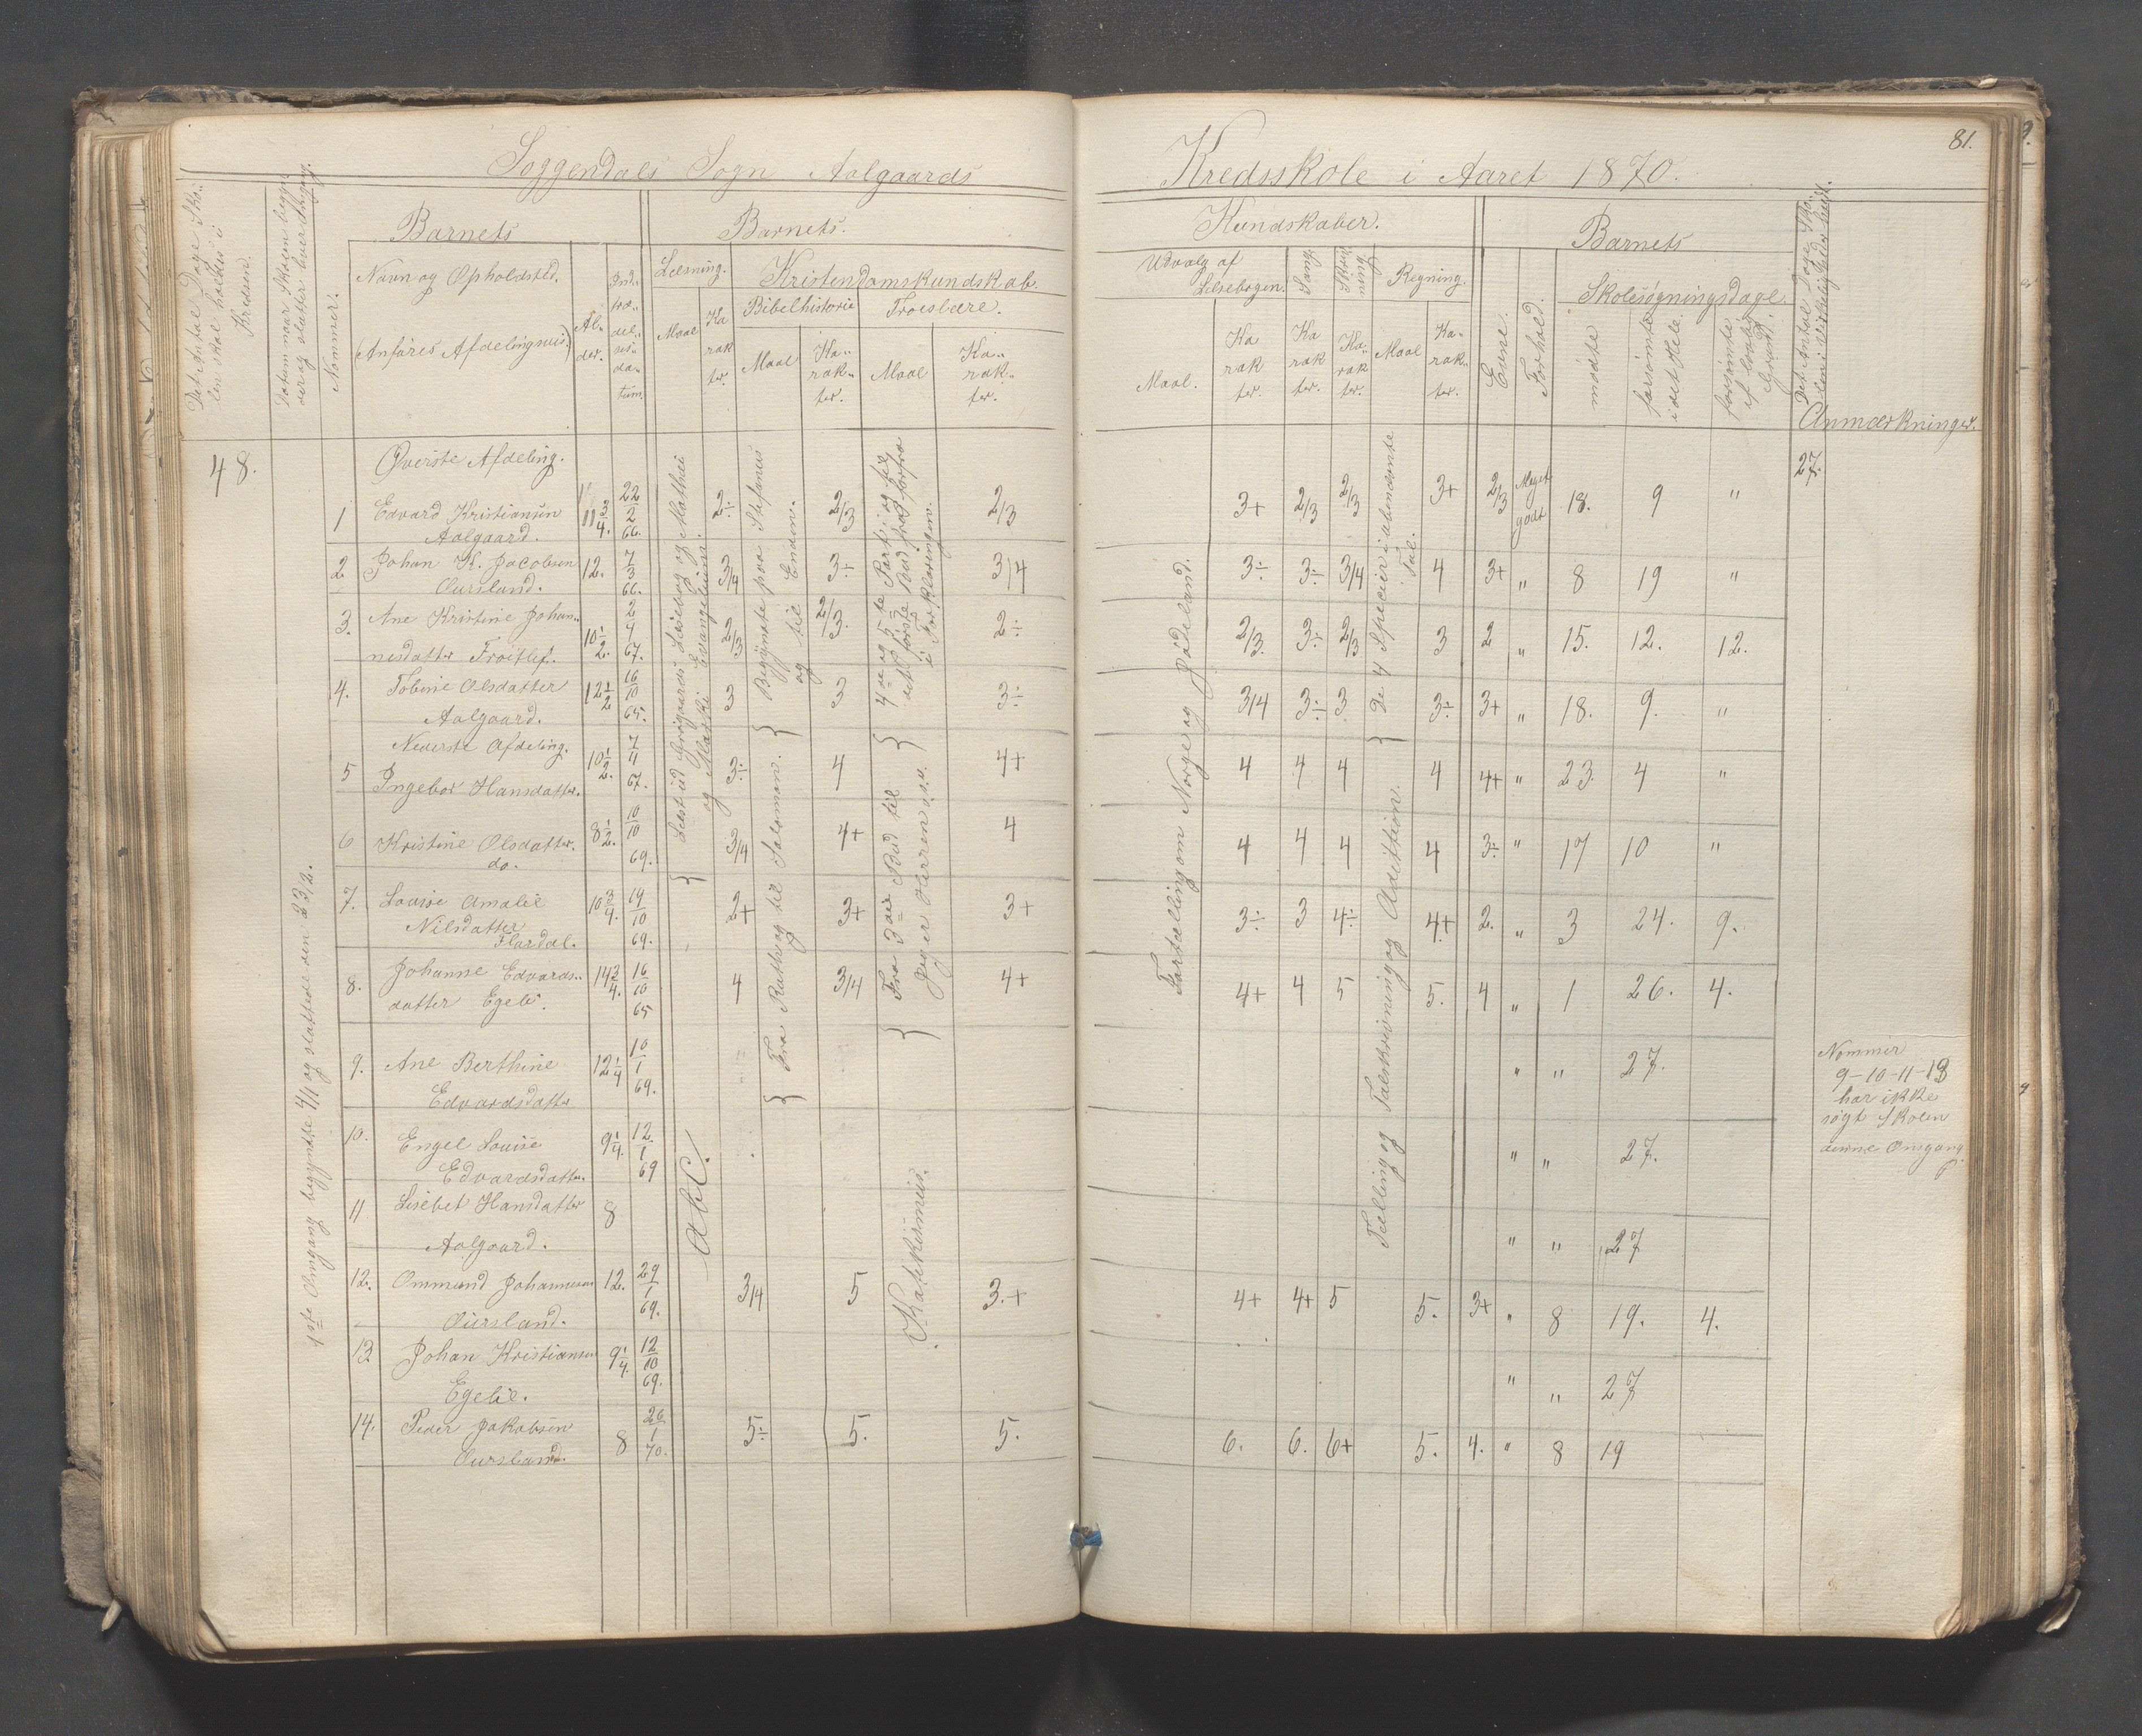 81.
Soggendals Sogn Aalgaards Kredsskole i Aaret 1870.
Det Antal Dage Sko-
len skal holdes i
Kredsen.
Datum naar Skolen begyn
der og slutter hver Omgang.
Nommer.
Barnets
Navn og Opholdsted.
(Anføres Afdelingsvis)
Al-
der.
Ind-
træ-
del-
ses-
da-
tum.
Barnets.
Læsning.
Maal
Ka
rak
ter.
Kristendomskundskab.
Bibelhistorie
Maal
Ka-
rak-
ter.
Troeslære.
Maal
Ka-
rak-
ter.
Kundskaber.
Udvalg af
Læsebogen.
Maal.
Ka
rak
ter.
Sang.
Ka
rak
ter.
Skriv
ning
Ka-
rak
ter.
Regning.
Maal
Ka-
rak-
ter.
Barnets
Evne.
Forhold.
Skolesøgningsdage.
mødte
forsømte
i det Hele.
forsømte
af lovlig
Grund.
Det Antal Dage Sko-
len i Virkeligheden holdt.
Anmærkninger.
48.
27.
1ste Omgang begyndte 4/1 og sluttede den 23/2.
Øverste Afdeling.
1 Edvard Kristiansen Aalgaard. 11 3/4. 22/2 66. 2÷ 2/3 2/3 3+ 2/3 2/3 3+ 2/3 Meget godt 18. 9 "
2 Johan K. Jacobsen Oursland. 12. 7/3 66. 3/4 3+ 3/4 3÷ 3÷ 3/4 4 3+ " 8 19 "
3. Ane Kristine Johan-
nesdatter Frøitlef. 10 1/2. 2/4 67. 2/3 2/3. 2÷ 2/3. 3÷ 2/3 3 2 " 15. 12. 12.
4. Tobine Olsdatter Aalgaard. 12 1/2 16/10 65. 3 3 3÷ 3/4 3÷ 3 3÷ 3+ " 18. 9. "
Nederste Afdeling.
5 Ingebor Hansdatter. 10 1/2. 7/4 67. 3÷ 4 4+ 4 4 4 4 4+ " 23. 4 "
6 Kristine Olsdatter. do. 8 1/2. 10/10 69. 3/4 4+ 4 4 4 4 4 3÷ " 17 10 "
7. Louise Amalie
Nilsdatter
Flordal. 10 3/4. 19/10 69. 2+ 3+ 3+ 3÷ 3 4÷ 4+ 2. " 3 24. 9.
8. Johanne Edvards-
datter Egeli. 14 3/4. 16/10 65 4 3/4 4+ 4+ 4 5 5. 4 " 1 26. 4.
9. Ane Berthine
Edvardsdatter 12 1/4 10/1 69. " " 27.
10. Engel Louise
Edvardsdatter. 9 1/4. 12/1 69 " " 27.
11 Lisebet Hansdatter
Aalgaard. 8 " " 27
12. Ommund Johannesen
Oursland. 12. 29/1 69. 3/4 5 3.+ 4+ 4+ 5 5. 3+ " 8 19. 4.
13 Johan Kristiansen
Egelie. 9 1/4. 12/10 69. " " 27
14. Peder Jakobsen
Oursland. 8 26/1 70. 5÷ 5. 5. 6. 6. 6+ 5. 4. " 8 19
Læst ud Grøgaards Læsebog og Mathæi
og Marki Evangelium.
abC.
Begyndte paa Stefanus
og til Enden.
Fra Ruth og til Salomon.
4de og 5te Part og til
det første Bud fra forfra
i Forklaringen.
Fra 3die Bud til
Jeg er Herren o.s.v.
Katekismus.
Fortælling om Norge og Jødeland.
De 4 Specier i ubenævnte
Tal.
Tælling og Talskrivning og Addition.
Nommer
9-10-11-13
har ikke
søgt Skolen
denne Omgang